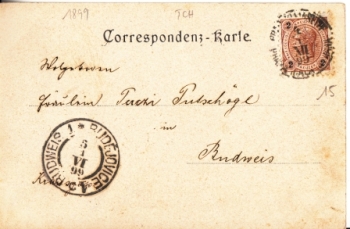 1899 TCH
Correspondenz-Karte.
Wolgeboren
Fräulein Tucki Putschögl
in
Budweis
15
BUDWEIS 1 * BUDĚJOVICE 1
5
VI
99